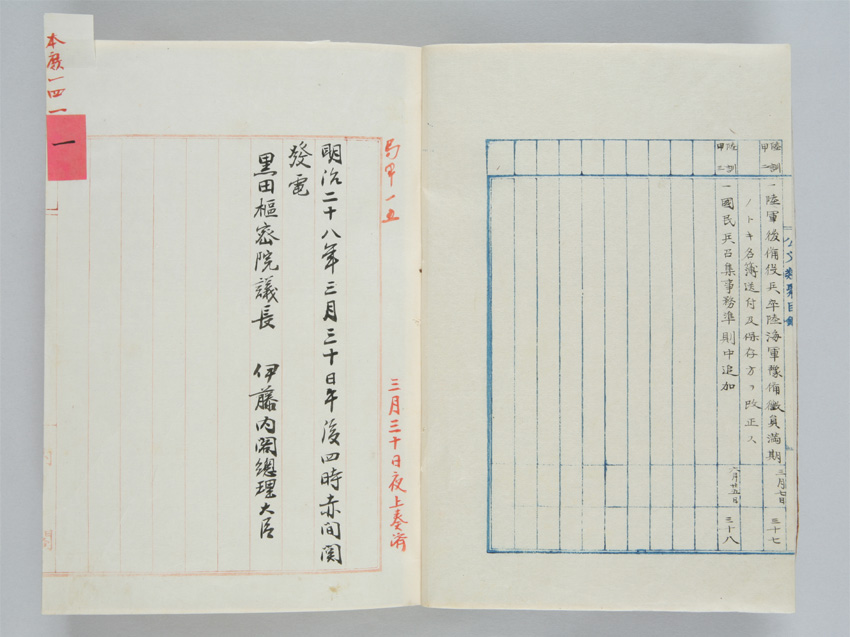 公文類聚目錄
陸訓甲二
一陸軍後備役兵卒陸海軍豫備徴員滿期
三月七日
三十七
ノトキ名簿送付及保存方ヲ改正ス
陸訓甲三
一國民兵召集事務準則中追加
六月廿五日
三十八
局甲一五
三月三十日夜上奏濟
明治二十八年三月三十日午後四時赤間関
發電
黒田樞密院議長 伊藤内閣總理大臣
本廳一四一
一
内閣